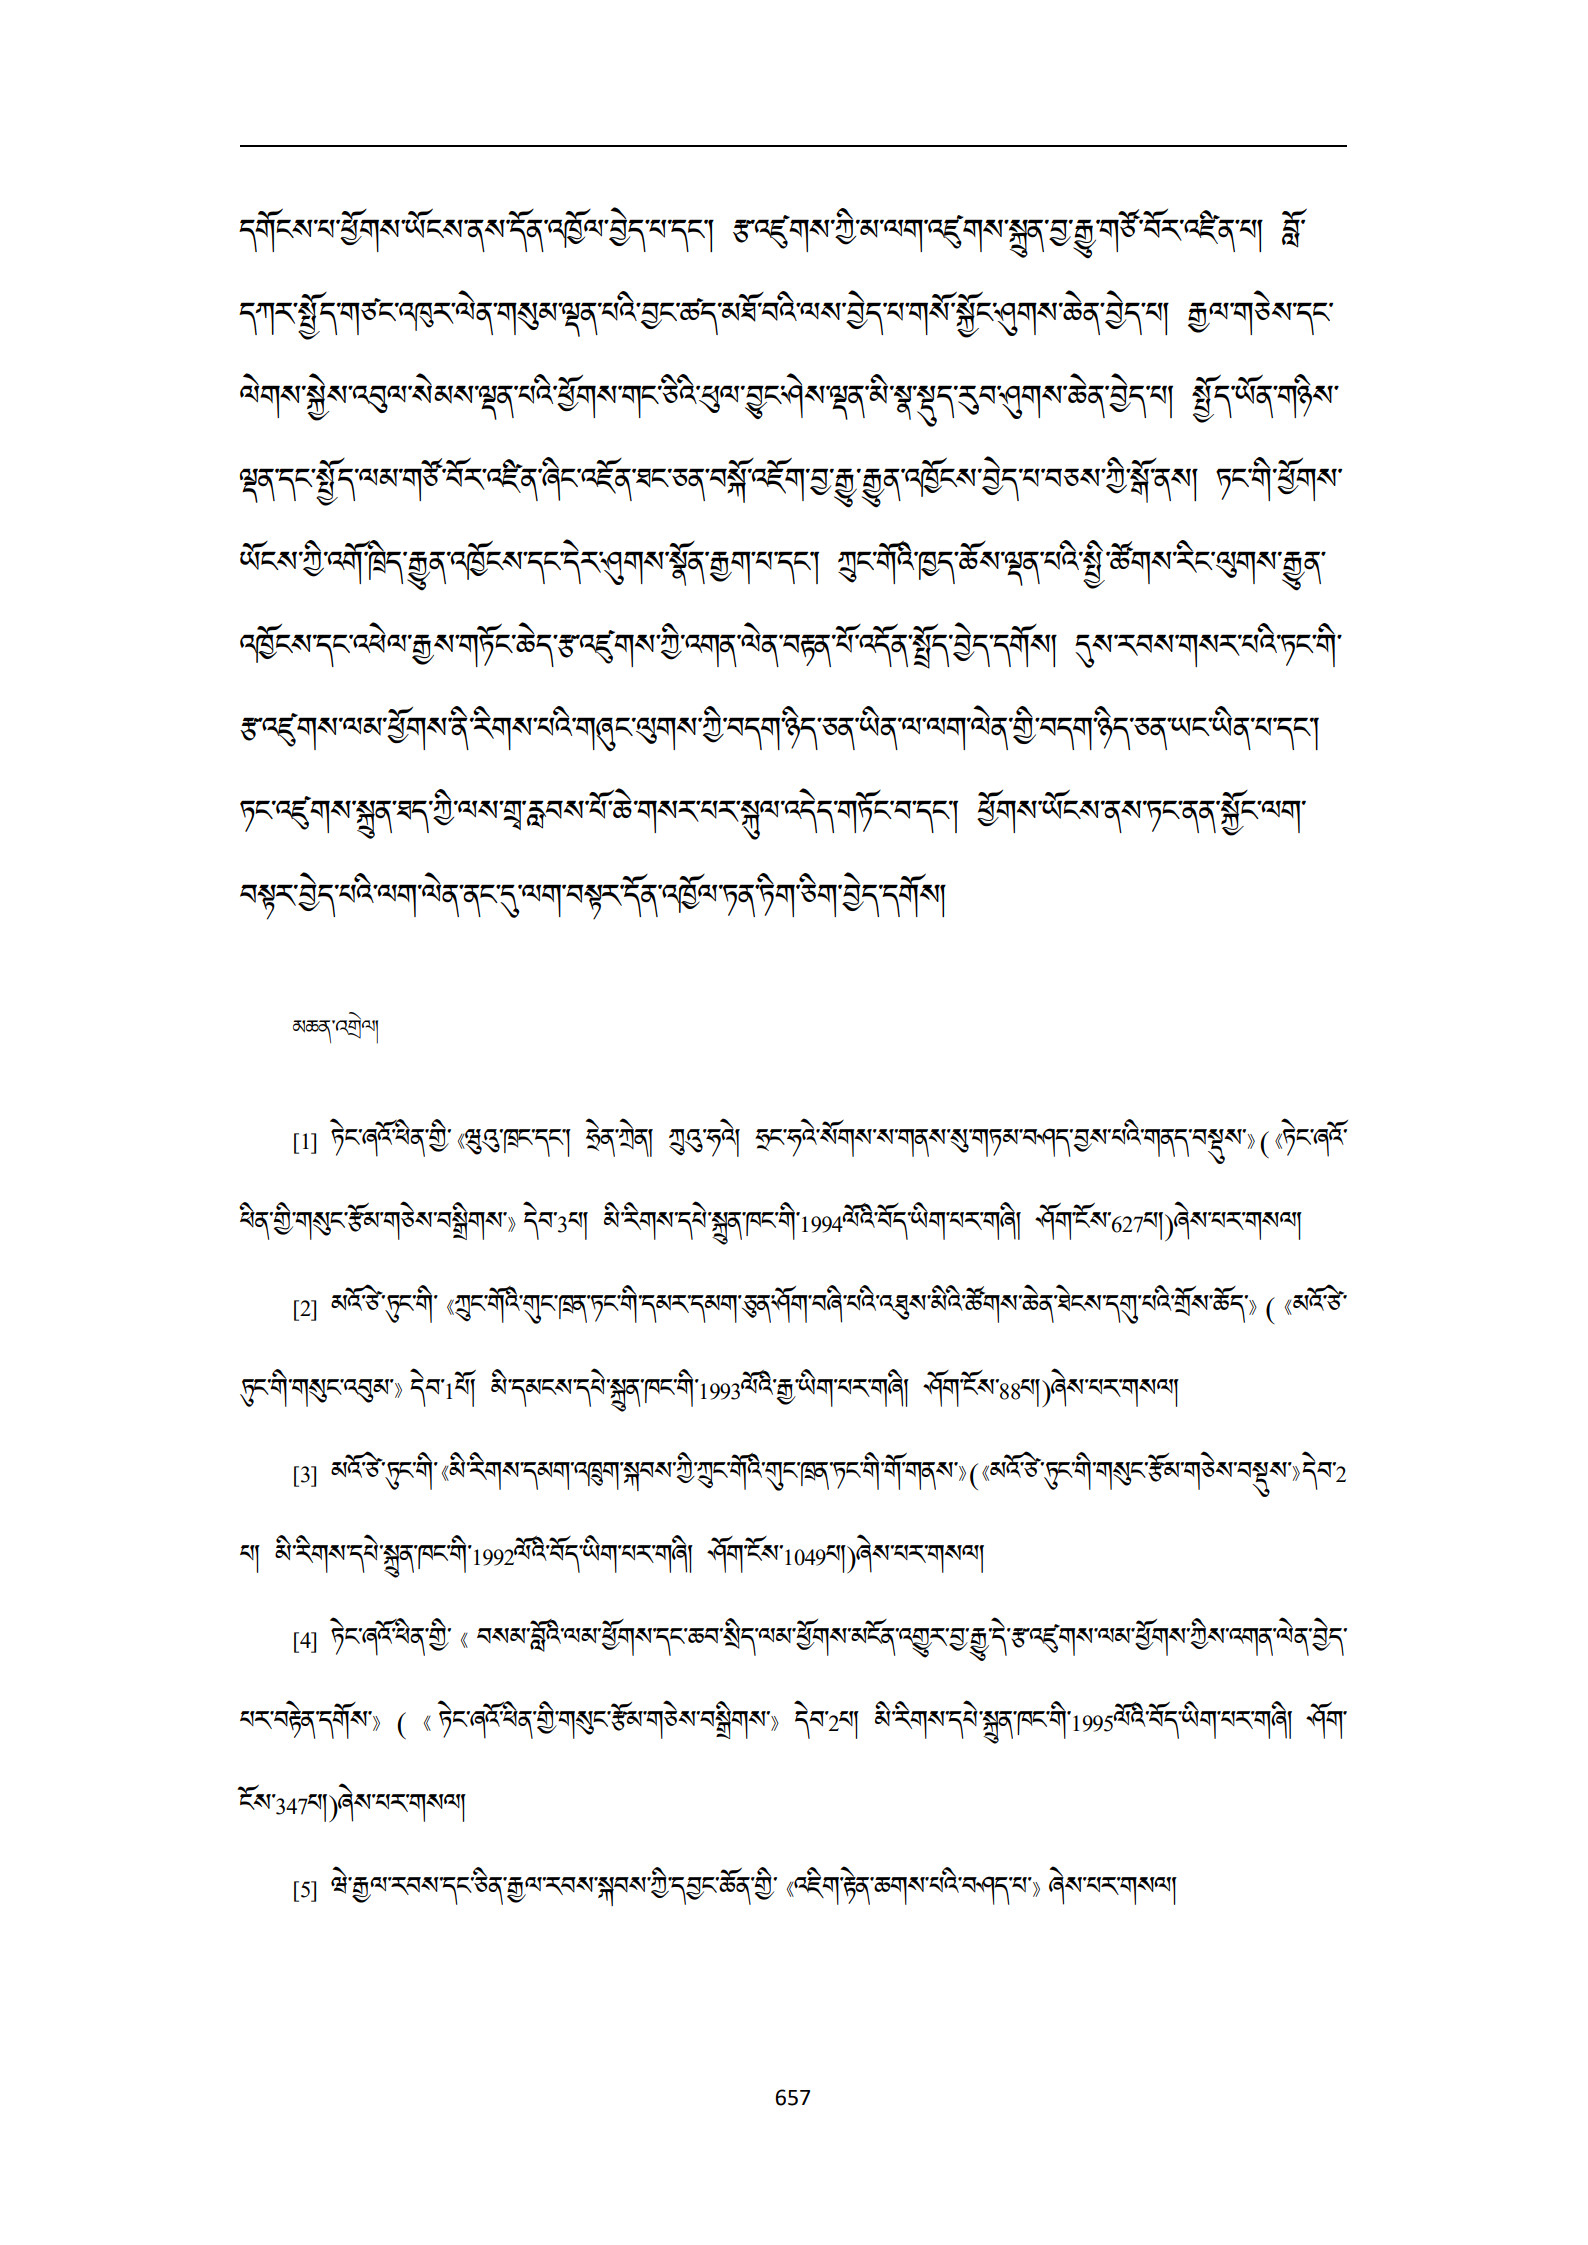 དགོངས་པ་ཕྱོགས་ཡོངས་ནས་དོན་འཁྱོལ་བྱེད་པ་དང་། རྩ་འཛུགས་ཀྱི་མ་ལག་འཛུགས་སྐྲུན་བྱ་རྒྱུ་གཙོ་བོར་འཛིན་པ། བློ་
དཀར་སྤྱོད་གཙང་འཁུར་ལེན་གསུམ་ལྡན་པའི་བྱང་ཚད་མཐོ་བའི་ལས་བྱེད་པ་གསོ་སྐྱོང་ཤུགས་ཆེན་བྱེད་པ། རྒྱལ་གཅེས་དང་
ལེགས་སྐྱེས་འབུལ་སེམས་ལྡན་པའི་ཕྱོགས་གང་ཅིའི་ཕུལ་བྱུང་ཤེས་ལྡན་མི་སྣ་སྡུད་རུབ་ཤུགས་ཆེན་བྱེད་པ། སྤྱོད་ཡོན་གཉིས་
ལྡན་དང་སྤྱོད་ལམ་གཙོ་བོར་འཛིན་ཞིང་འཇོན་ཐང་ཅན་བསྐོ་འཇོག་བྱ་རྒྱུ་རྒྱུན་འཁྱོངས་བྱེད་པ་བཅས་ཀྱི་སྒོ་ནས། ཏང་གི་ཕྱོགས་
ཡོངས་ཀྱི་འགོ་ཁྲིད་རྒྱུན་འཁྱོངས་དང་དེར་ཤུགས་སྣོན་རྒྱག་པ་དང་། ཀྲུང་གོའི་ཁྱད་ཆོས་ལྡན་པའི་སྤྱི་ཚོགས་རིང་ལུགས་རྒྱུན་
འཁྱོངས་དང་འཕེལ་རྒྱས་གཏོང་ཆེད་རྩ་འཛུགས་ཀྱི་འགན་ལེན་བརྟན་པོ་འདོན་སྤྲོད་བྱེད་དགོས། དུས་རབས་གསར་པའི་ཏང་གི་
རྩ་འཛུགས་ལམ་ཕྱོགས་ནི་རིགས་པའི་གཞུང་ལུགས་ཀྱི་བདག་ཉིད་ཅན་ཡིན་ལ་ལག་ལེན་གྱི་བདག་ཉིད་ཅན་ཡང་ཡིན་པ་དང་།
ཏང་འཛུགས་སྐྲུན་ཐད་ཀྱི་ལས་གྲྭ་རླབས་པོ་ཆེ་གསར་པར་སྐུལ་འདེད་གཏོང་བ་དང་། ཕྱོགས་ཡོངས་ནས་ཏང་ནན་སྐྱོང་ལག་
བསྟར་བྱེད་པའི་ལག་ལེན་ནང་དུ་ལག་བསྟར་དོན་འཁྱོལ་ཏན་ཏིག་ཅིག་བྱེད་དགོས།
མཆན་འགྲེལ།
[1] ཏེང་ཞའོ་ཕིན་གྱི་《ཝུའུ་ཁྲང་དང་། ཧྲེན་ཀྲེན། ཀྲུའུ་ཧའེ། ཧྲང་ཧའེ་སོགས་ས་གནས་སུ་གཏམ་བཤད་བྱས་པའི་གནད་བསྡུས་》(《ཏེང་ཞའོ་
ཕིན་གྱི་གསུང་རྩོམ་གཅེས་བསྒྲིགས་》དེབ་3པ། མི་རིགས་དཔེ་སྐྲུན་ཁང་གི་1994ལོའི་བོད་ཡིག་པར་གཞི། ཤོག་ངོས་627པ།)ཞེས་པར་གསལ།
[2] མའོ་ཙེ་ཏུང་གི་《ཀྲུང་གོའི་གུང་ཁྲན་ཏང་གི་དམར་དམག་ཅུན་ཤོག་བཞི་པའི་འཐུས་མིའི་ཚོགས་ཆེན་ཐེངས་དགུ་པའི་གྲོས་ཆོད་》(《མའོ་ཙེ་
ཏུང་གི་གསུང་འབུམ་》དེབ་1པོ། མི་དམངས་དཔེ་སྐྲུན་ཁང་གི་1993ལོའི་རྒྱ་ཡིག་པར་གཞི། ཤོག་ངོས་88པ།)ཞེས་པར་གསལ།
[3] མའོ་ཙེ་ཏུང་གི་《མི་རིགས་དམག་འཁྲུག་སྐབས་ཀྱི་ཀྲུང་གོའི་གུང་ཁྲན་ཏང་གི་གོ་གནས་》(《མའོ་ཙེ་ཏུང་གི་གསུང་རྩོམ་གཅེས་བསྡུས་》དེབ་2
པ། མི་རིགས་དཔེ་སྐྲུན་ཁང་གི་1992ལོའི་བོད་ཡིག་པར་གཞི། ཤོག་ངོས་1049པ།)ཞེས་པར་གསལ།
[4] ཏེང་ཞའོ་ཕིན་གྱི་《བསམ་བློའི་ལམ་ཕྱོགས་དང་ཆབ་སྲིད་ལམ་ཕྱོགས་མངོན་འགྱུར་བྱ་རྒྱུ་དེ་རྩ་འཛུགས་ལམ་ཕྱོགས་ཀྱིས་འགན་ལེན་བྱེད་
པར་བརྟེན་དགོས་》(《ཏེང་ཞའོ་ཕིན་གྱི་གསུང་རྩོམ་གཅེས་བསྒྲིགས་》དེབ་2པ། མི་རིགས་དཔེ་སྐྲུན་ཁང་གི་1995ལོའི་བོད་ཡིག་པར་གཞི། ཤོག་
ངོས་347པ།)ཞེས་པར་གསལ།
[5] ཝེ་རྒྱལ་རབས་དང་ཅིན་རྒྱལ་རབས་སྐབས་ཀྱི་དབྱང་ཆོན་གྱི་《འཇིག་རྟེན་ཆགས་པའི་བཤད་པ་》ཞེས་པར་གསལ།
657